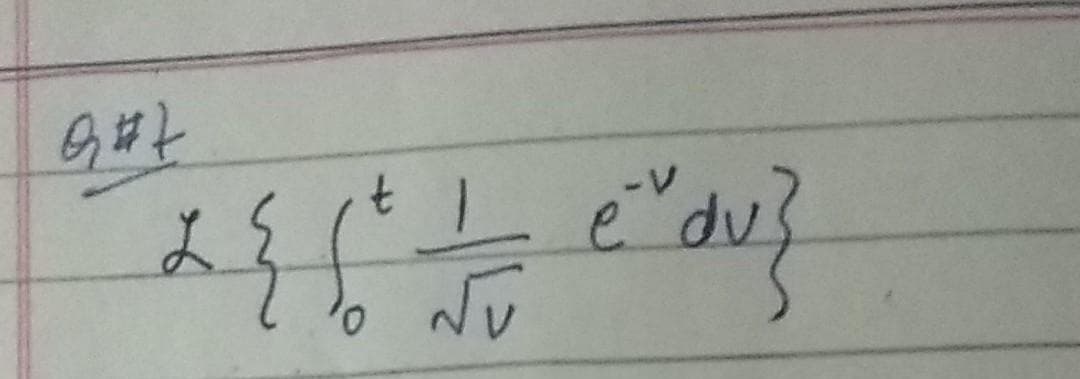 Q#1
ℒ { ∫₀ᵗ 1/√v e⁻ᵛ dv }